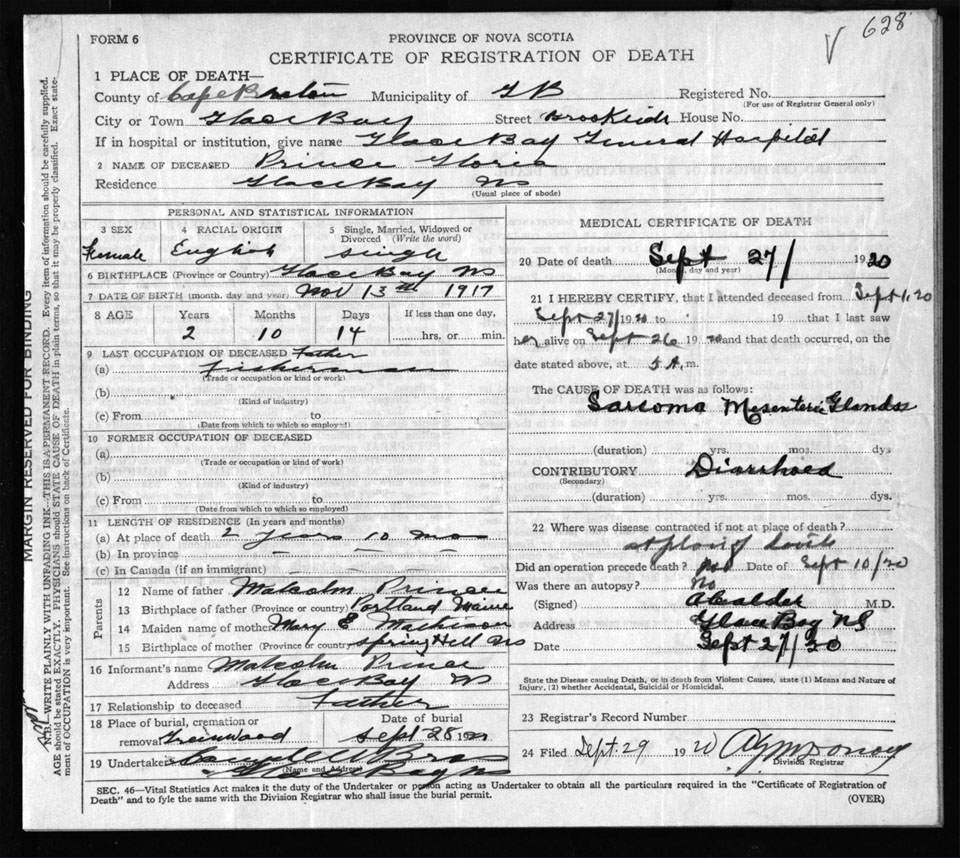 628
V
FORM 6
PROVINCE OF NOVA SCOTIA
CERTIFICATE OF REGISTRATION OF DEATH
1 PLACE OF DEATH—
County of Cape Breton Municipality of G B Registered No.
(For use of Registrar General only)
City or Town Glace Bay Street Brookside House No.
If in hospital or institution, give name Glace Bay General Hospital
2 NAME OF DECEASED Prince Gloria
Residence Glace Bay NS
(Usual place of abode)
PERSONAL AND STATISTICAL INFORMATION
3 SEX 4 RACIAL ORIGIN 5 Single, Married, Widowed or Divorced (Write the word)
Female English single
6 BIRTHPLACE (Province or Country) Glace Bay NS
7 DATE OF BIRTH (month, day and year) Nov 13th 1917
8 AGE Years Months Days If less than one day,
2 10 14 hrs. or min.
9 LAST OCCUPATION OF DECEASED Father
(a) Fisherman
(Trade or occupation or kind or work)
(b)
(Kind of industry)
(c) From to
(Date from which to which so employed)
10 FORMER OCCUPATION OF DECEASED
(a)
(Trade or occupation or kind of work)
(b)
(Kind of industry)
(c) From to
(Date from which to which so employed)
11 LENGTH OF RESIDENCE (In years and months)
(a) At place of death 2 years 10 mos
(b) In province — — —
(c) In Canada (if an immigrant) — — —
Parents
12 Name of father Malcolm Prince
13 Birthplace of father (Province or country) Portland Maine
14 Maiden name of mother Mary E
15 Birthplace of mother (Province or country) Spring Hill NS
16 Informant's name Malcolm Prince
Address Glace Bay NS
17 Relationship to deceased Father
18 Place of burial, cremation or Date of burial
removal Greenwood Sept 28 192
19 Undertaker
(Name and Address)
Glace Bay NS
MEDICAL CERTIFICATE OF DEATH
20 Date of death Sept 27/ 1920
(Month, day and year)
21 I HEREBY CERTIFY, that I attended deceased from Sept 1, 20
Sept 27/1920 to 19 that I last saw
her alive on Sept 26 1920 and that death occurred, on the
date stated above, at 5 A. m.
The CAUSE OF DEATH was as follows:
Sarcoma Mesenteric Glands
(duration) yrs. mos. dys
CONTRIBUTORY Diarrhoea
(Secondary)
(duration) yrs. mos. dys.
22 Where was disease contracted if not at place of death?
at place of death
Did an operation precede death? Date of Sept 10/20
Was there an autopsy? No
(Signed) M.D.
Address Glace Bay NS
Date Sept 27/20
State the Disease causing Death, or in death from Violent Causes, state (1) Means and Nature of
Injury, (2) whether Accidental, Suicidal or Homicidal.
23 Registrar's Record Number
24 Filed Sept. 29 1920
Division Registrar
SEC. 46—Vital Statistics Act makes it the duty of the Undertaker or person acting as Undertaker to obtain all the particulars required in the "Certificate of Registration of
Death" and to fyle the same with the Division Registrar who shall issue the burial permit.
(OVER)
MARGIN RESERVED FOR BINDING
N.B.—WRITE PLAINLY WITH UNFADING INK—THIS IS A PERMANENT RECORD. Every item of information should be carefully supplied.
AGE should be stated EXACTLY. PHYSICIANS should STATE CAUSE OF DEATH in plain terms, so that it may be properly classified. Exact state-
ment of OCCUPATION is very important. See instructions on back of Certificate.